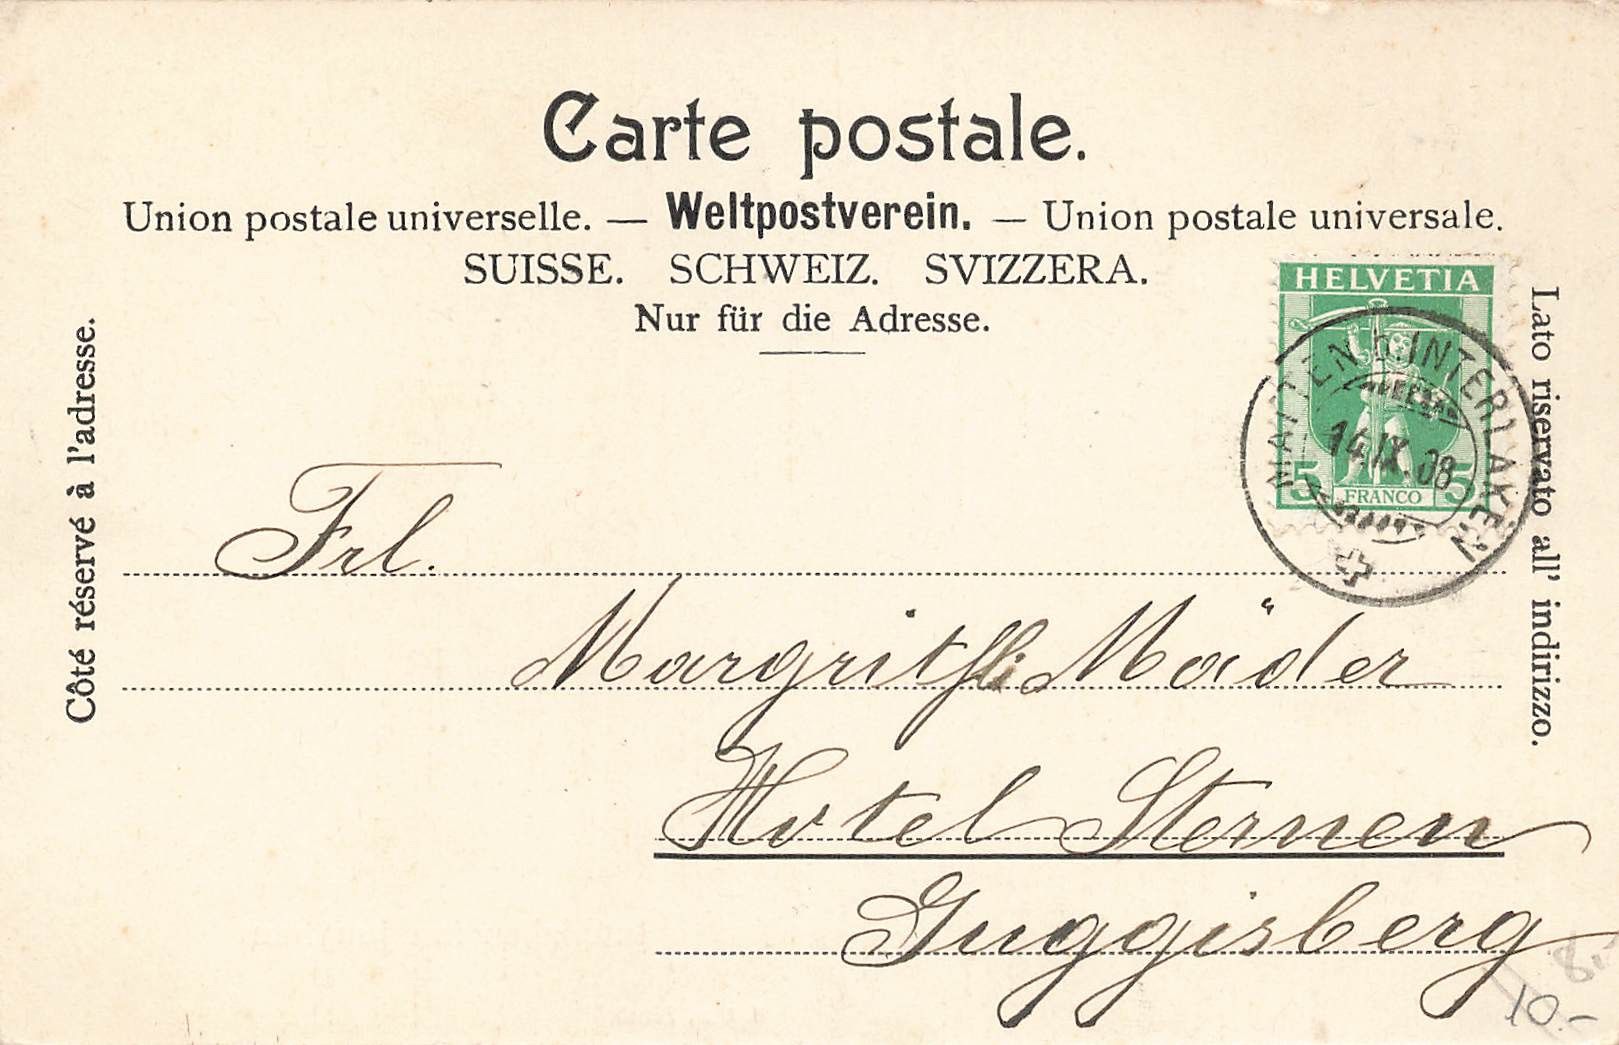 Carte postale.
Union postale universelle. — Weltpostverein. — Union postale universale.
SUISSE. SCHWEIZ. SVIZZERA.
Nur für die Adresse.
Côté réservé à l'adresse.
Lato riservato all' indirizzo.
HELVETIA
5 FRANCO 5
MATTEN b. INTERLAKEN
14.IX.08
Frl.
Margrithli Mäder
Hotel Sternen
Guggisberg
8.-
10.-